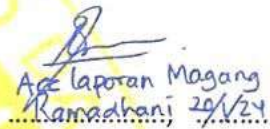 Acc laporan Magang
Ramadhani, 29/1/24